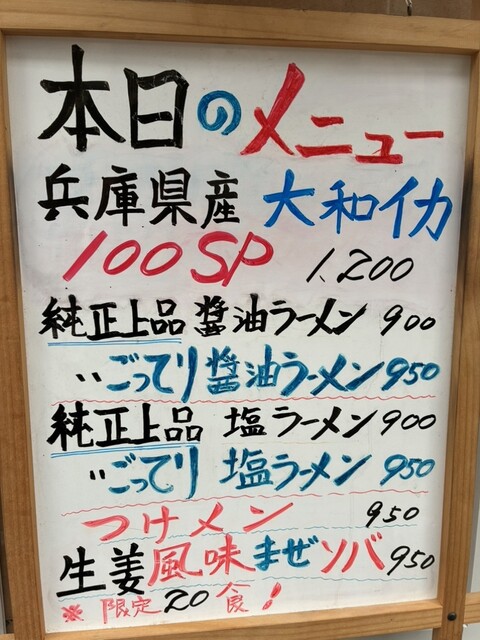 本日のメニュー
兵庫県産 大和イカ
100SP 1,200
純正上品 醤油ラーメン 900
〃ごってり醤油ラーメン950
純正上品 塩ラーメン 900
〃ごってり 塩ラーメン 950
つけメン 950
生姜風味まぜソバ950
※限定20食!